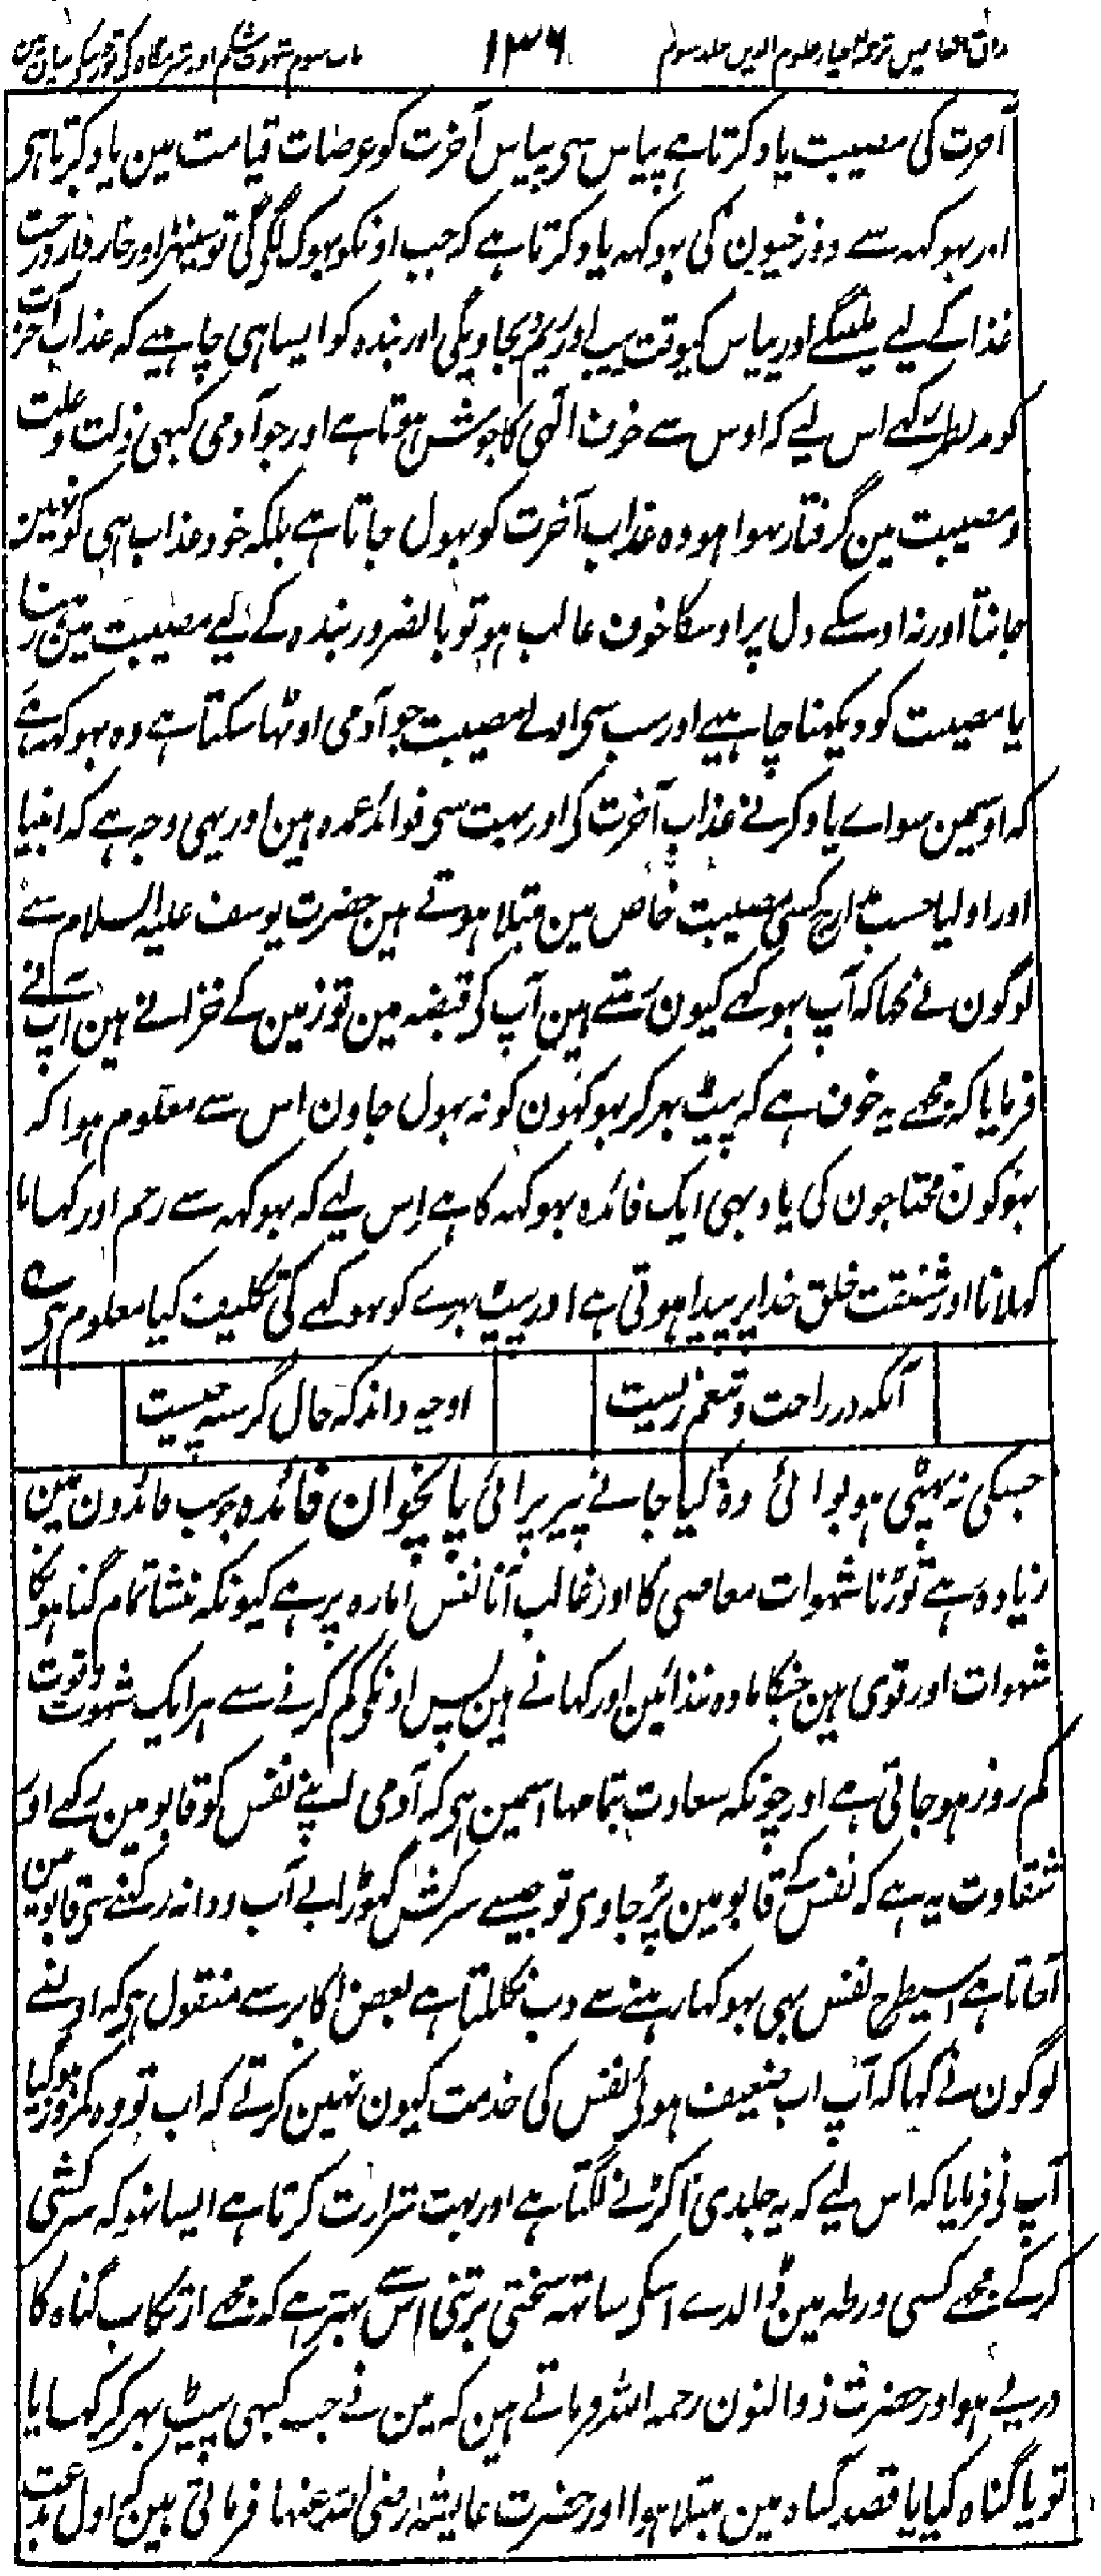 مذاق العارفین ترجمہ احیاء علوم الدین جلد سوم ۱۳۶ باب سوم شہوت شکم اور شرمگاہ کی توڑنیکی بیان مین
آخرت کی مصیبت یاد کرتا ہے پیاس سی پیاس آخرت کو عرضات قیامت مین یاد کرتا ہی
اور بہوکہہ سے دوزخیون کی بہوکہہ یاد کرتا ہے کہ جب اونکو بہوک لگی گی تو سینڈ اور خار دار درخت
غذا کے لیے ملینگے اور پیاس کیوقت پیپ اور ریم دیجاویگی اور بندہ کو ایسا ہی چاہیے کہ عذاب آخرت
کو مدنظر رکہے اس لیے کہ اوس سے خوف الٰہی کا جوش ہوتا ہے اور جو آدمی کبہی ذلت و علت
و مصیبت مین گرفتار نہوا ہو وہ عذاب آخرت کو بہول جاتا ہے بلکہ خود عذاب ہی کو نہین
جانتا اور نہ اوسکے دل پر اوسکا خوف غالب ہو تو بالضرور بندہ کے لیے مصیبت مین رہنا
یا مصیبت کو دیکہنا چاہیے اور سب سی اولے مصیبت جو آدمی اوٹہا سکتا ہے وہ بہوکہہ ہے
کہ اوسمین سواے یاد کرنے عذاب آخرت کی اور بہت سی فوائد عمدہ ہین اور یہی وجہ ہے کہ انبیا
اور اولیا حسب مدارج کسی مصیبت خاص مین مبتلا ہوتے ہین حضرت یوسف علیہ السلام سے
لوگون نے کہا کہ آپ بہوکہے کیون رہتے ہین آپ کی قبضہ مین تو زمین کے خزانے ہین آپ نے
فرمایا کہ مجھے یہ خوف ہے کہ پیٹ بہر کر بہوکہون کو نہ بہول جاون اس سے معلوم ہوا کہ
بہوکون محتاجون کی یاد بہی ایک فائدہ بہوکہہ کا ہے اس لیے کہ بہوکہہ سے رحم اور کہانا
کہلانا اور شفقت خلق خدا پر پیدا ہوتی ہے اور پیٹ بہرے کو بہوکے کی تکلیف کیا معلوم ہی
آنکہ در راحت و تنعم زیست اوچہ داند کہ حال گرسنہ چیست
جسکی نہ پہٹی ہو بوائی وہ کیا جانے پیر پرائی پانچوان فائدہ جو سب فائدون مین
زیادہ ہے توڑنا شہوات معاصی کا اور غالب آنا نفس امارہ پر ہے کیونکہ منشا تمام گناہونکا
شہوات اور قوی ہین جنکا مادہ غذائین اور کہانے ہین پس اونکی کم کرنے سے ہر ایک شہوت و قوت
کمزور ہو جاتی ہے اور چونکہ سعادت بتمامہا اسمین ہی کہ آدمی اپنے نفس کو قابو مین رکہے اور
شقاوت یہ ہے کہ نفس کے قابو مین پڑجاوی تو جیسے سرکش گہوڑا بے آب و دانہ رکہنے سی قابو مین
آجاتا ہے اسیطرح نفس بہی بہوکہا رہنے سے دب نکلتا ہے بعض اکابر سے منقول ہی کہ اونسے
لوگون نے کہا کہ آپ اب ضعیف ہوئی نفس کی خدمت کیون نہین کرتے کہ اب تو وہ کمزور ہوگیا
آپ نی فرمایا کہ اس لیے کہ یہ جلدی اکڑنے لگتا ہے اور بہت شرارت کرتا ہے ایسا نہو کہ سرکشی
کرکے مجھے کسی ورطہ مین ڈالدے اسکی ساتہہ سختی برتنی اس سے بہتر ہے کہ مجھے ارتکاب گناہ کا
درپے ہو اور حضرت ذوالنون رحمہ اللہ فرماتے ہین کہ مین نے جب کبہی پیٹ بہر کر کہایا
تو یا گناہ کیا یا قصد گناہ مین مبتلا ہوا اور حضرت عایشہ رضی اللہ عنہا فرماتی ہین کہ اول بدعت